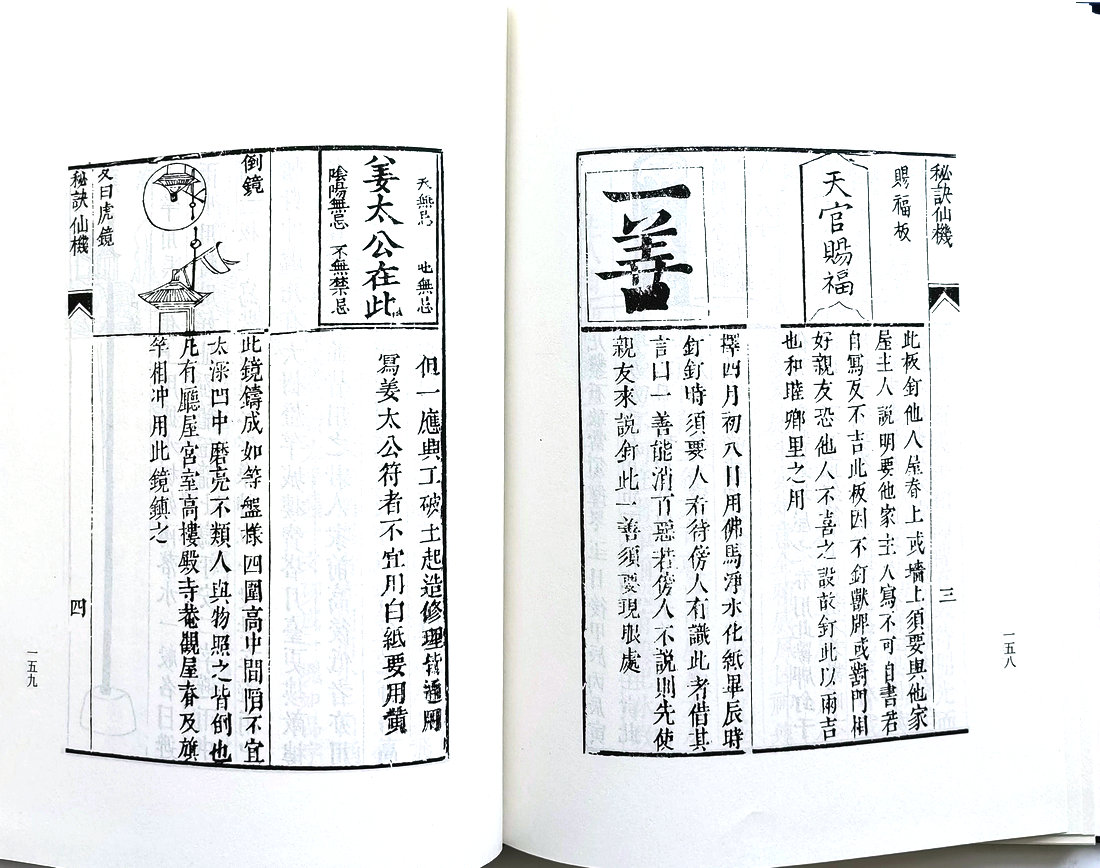 秘訣仙機
三
一五八
賜福板
天官賜福
此板釘他人屋春上或墻上須要與他家
屋主人說明要他家主人寫不可自書若
自寫反不吉此板因不釘獸牌或對門相
好親友恐他人不喜之設故釘此以兩吉
也和睦鄉里之用
一善
擇四月初八日用佛馬淨水化紙畢辰時
釘釘時須要人看待傍人有識此者借其
言曰一善能消百惡若傍人不說則先使
親友來說釘此一善須要現眼處
天無忌
地無忌
姜太公在此
陰陽無忌
不無禁忌
但一應興工破土起造修理皆通用
寫姜太公符者不宜用白紙要用黃
倒鏡
此鏡鑄成如等盤樣四圍高中間陷不宜
太深凹中磨亮不類人與物照之皆倒也
凡有廳屋宮室高樓殿寺菴觀屋春及旗
竿相冲用此鏡鎮之
又曰虎鏡
秘訣仙機
四
一五九